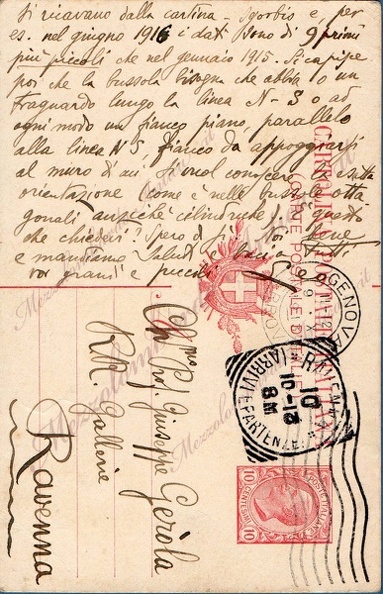 si ricavano dalla cartina - Sgorbis e, per
es. nel giugno 1916 i dati sono di 9 primi
più piccoli che nel gennaio 1915. Si capisce
poi che la bussola bisogna che abbia o un
traguardo lungo la linea N-S o ad
ogni modo un fianco piano, parallelo
alla linea NS, fianco da appoggiarsi
al muro di cui si vuol conoscere l'esatta
orientazione (come è nelle bussole otta
gonali anziché cilindriche). È questo
che chiedevi? Spero di sì. Noi bene
e mandiamo saluti e baci a tutti
voi grandi e piccoli
CARTOLINA POSTALE ITALIANA
(CARTE POSTALE D'ITALIE)
GENOVA
11-12
Ch.mo Prof. Giuseppe Geròla
RR. Gallerie
Ravenna
RAVENNA
10
10-16
8M
(ARRIVI E PARTENZE)
POSTE ITALIANE
10 CENTESIMI 10
Mezzolombardo